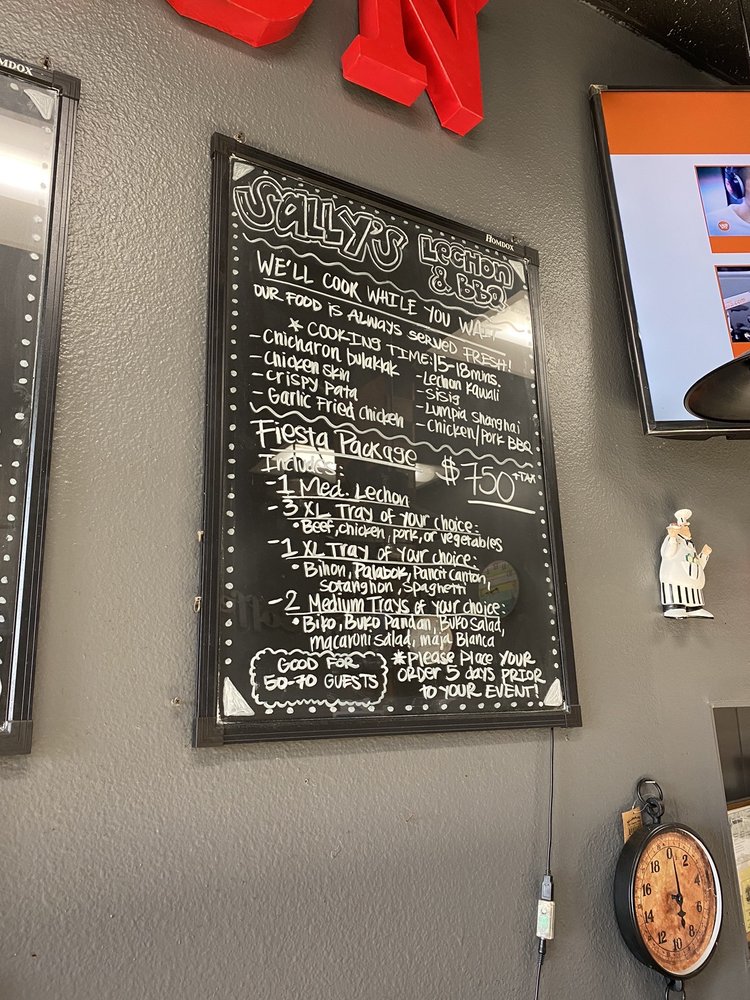 ON
OMDOX
HOMDOX
Sally's Lechon & BBQ
WE'LL COOK WHILE YOU WAIT
OUR FOOD IS ALWAYS SERVED FRESH!
* COOKING TIME: 15-18 mins.
- Chicharon bulaklak
- Chicken skin
- Crispy Pata
- Garlic Fried Chicken
- Lechon Kawali
- Sisig
- Lumpia Shanghai
- Chicken/Pork BBQ
Fiesta Package $750 +TAX
Includes:
- 1 Med. Lechon
- 3 XL Tray of your choice:
• Beef, chicken, pork, or vegetables
- 1 XL Tray of your choice:
• Bihon, Palabok, Pancit Canton,
Sotanghon, Spaghetti
- 2 Medium Trays of your choice:
• Biko, Buko Pandan, Buko Salad,
macaroni salad, maja Blanca
GOOD FOR
50-70 GUESTS
* Please Place YOUR
ORDER 5 days PRIOR
TO YOUR EVENT!
0
2
4
6
8
10
12
14
16
18